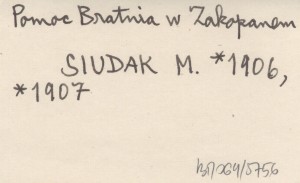 Pomoc Bratnia w Zakopanem
SIUDAK M. *1906,
*1907
BJ/069/5756